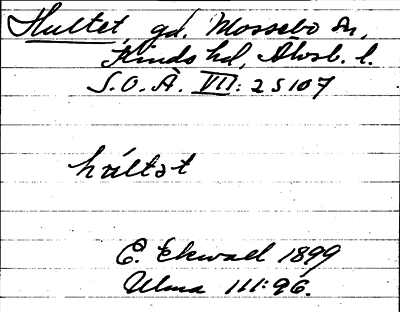 Hultet, gd. Mossebo sn,
Kinds hd, Älvsb. l.
S.O.Ä. VII: 2 S 107
húltət
E. Ekwall 1899
Ulma 111:96.